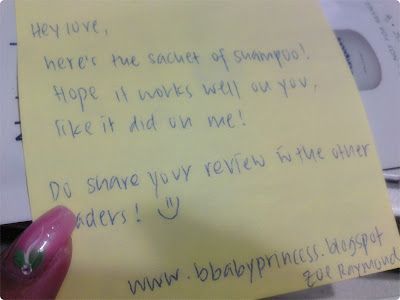 Hey love,
here's the sachet of shampoo!
Hope it works well on you,
like it did on me!
Do share your review w the other
aders! :)
www.bbabyprincess.blogspot
Zoe Raymond